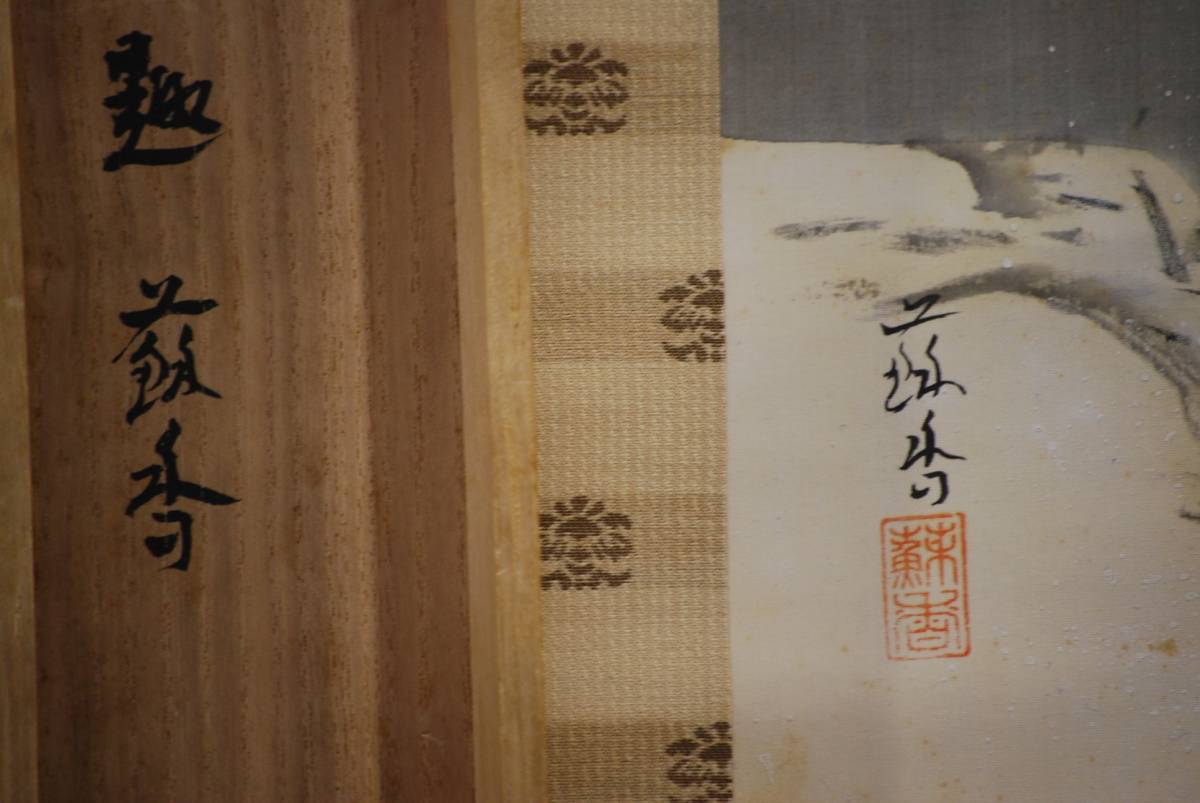 趣
蘇香
蘇香
蘇香